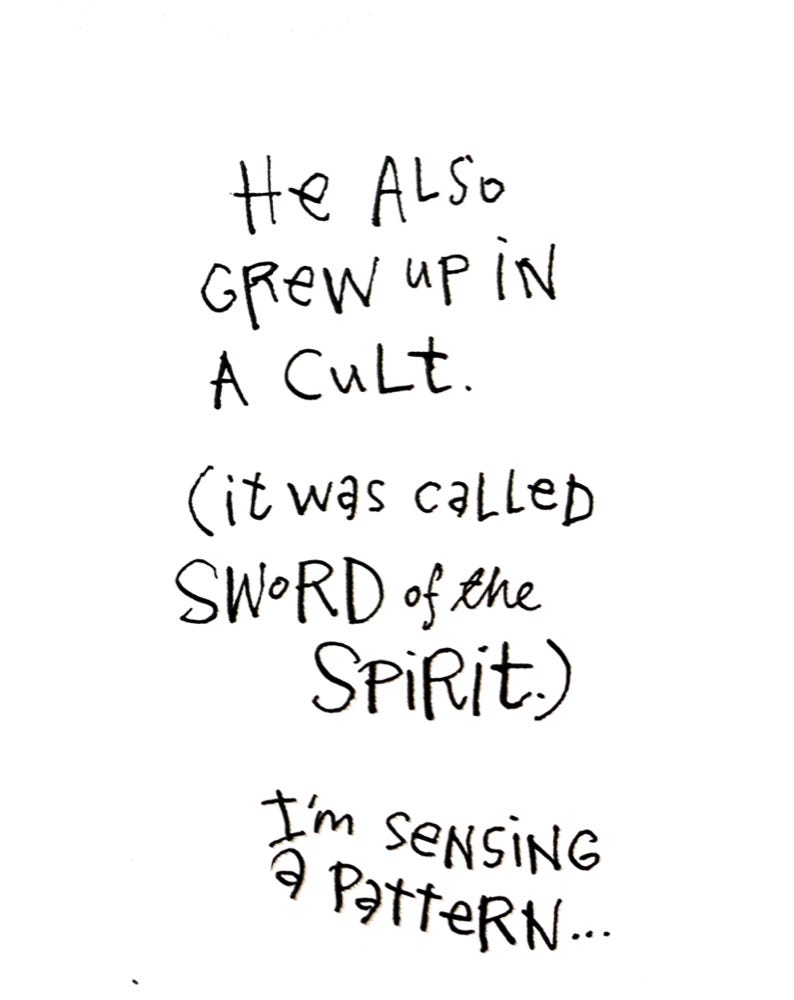 He ALSo
GReW uP iN
A CuLt.
(it was caLLeD
SWoRD of the
SPiRit.)
I'm SeNSiNG
a PatteRN...